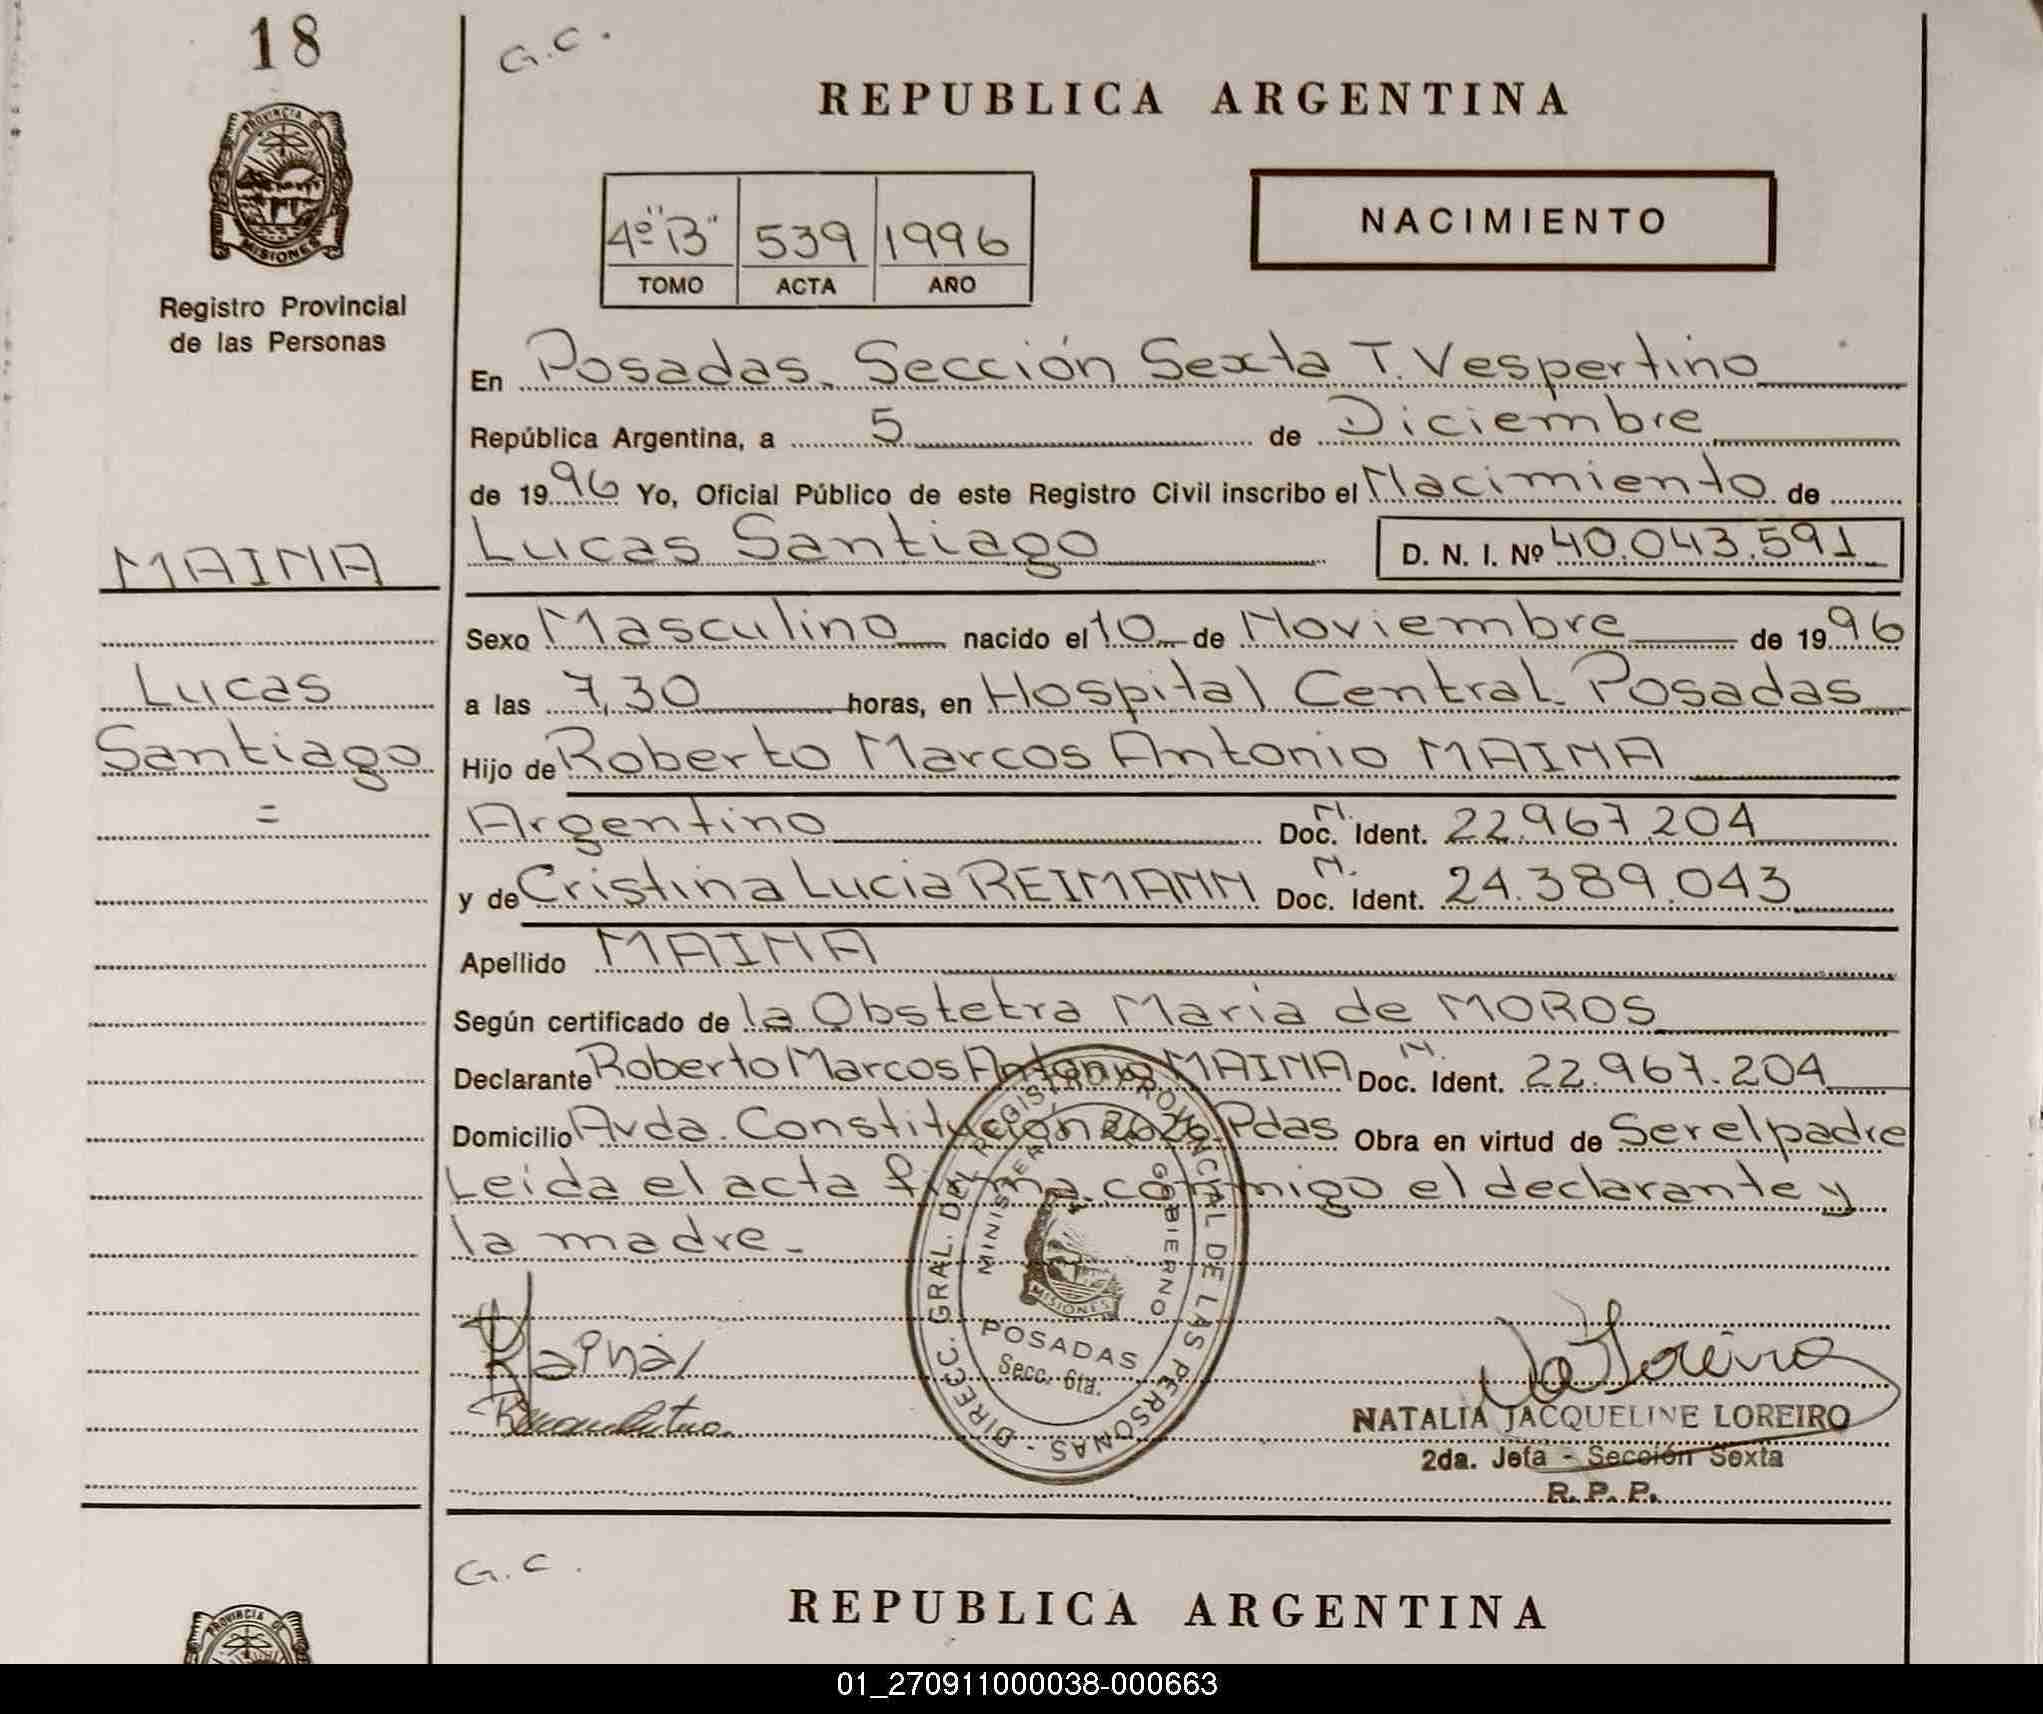 18
G.C.
PROVINCIA DE
MISIONES
Registro Provincial
de las Personas
REPUBLICA ARGENTINA
4º "B" 539 1996
TOMO ACTA AÑO
NACIMIENTO
En Posadas. Sección Sexta T. Vespertino
República Argentina, a 5 de Diciembre
de 1996 Yo, Oficial Público de este Registro Civil inscribo el Nacimiento de
Lucas Santiago D. N. I. Nº 40.043.591
MAINA
Lucas
Santiago
=
Sexo Masculino nacido el 10 de Noviembre de 1996
a las 7,30 horas, en Hospital Central Posadas
Hijo de Roberto Marcos Antonio MAINA
Argentino Doc. N. Ident. 22.967.204
y de Cristina Lucia REIMANN Doc. N. Ident. 24.389.043
Apellido MAINA
Según certificado de la Obstetra Maria de MOROS
Declarante Roberto Marcos Antonio MAINA Doc. N. Ident. 22.967.204
Domicilio Avda. Constitución Pdas Obra en virtud de Ser el padre
Leida el acta firma conmigo el declarante y
la madre.-
DIRECC. GRAL. DEL REGISTRO PROVINCIAL DE LAS PERSONAS -
MINISTERIO GOBIERNO
MISIONES
POSADAS
Secc. 6ta.
Maina
NATALIA JACQUELINE LOREIRO
2da. Jefa - Sección Sexta
R. P. P.
G.C.
PROVINCIA DE
REPUBLICA ARGENTINA
01_270911000038-000663